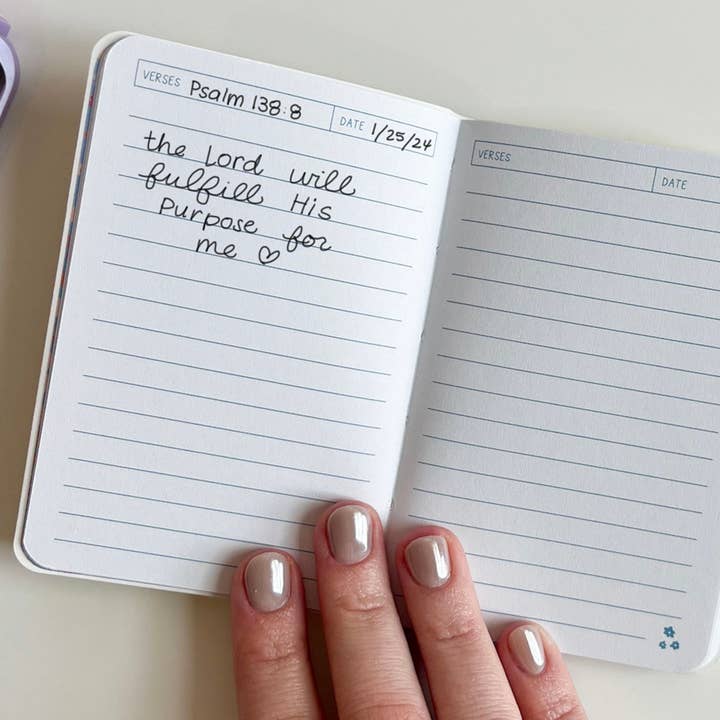 VERSES Psalm 138:8 DATE 1/25/24
the Lord will
fulfill His
Purpose for
me ♡
VERSES DATE